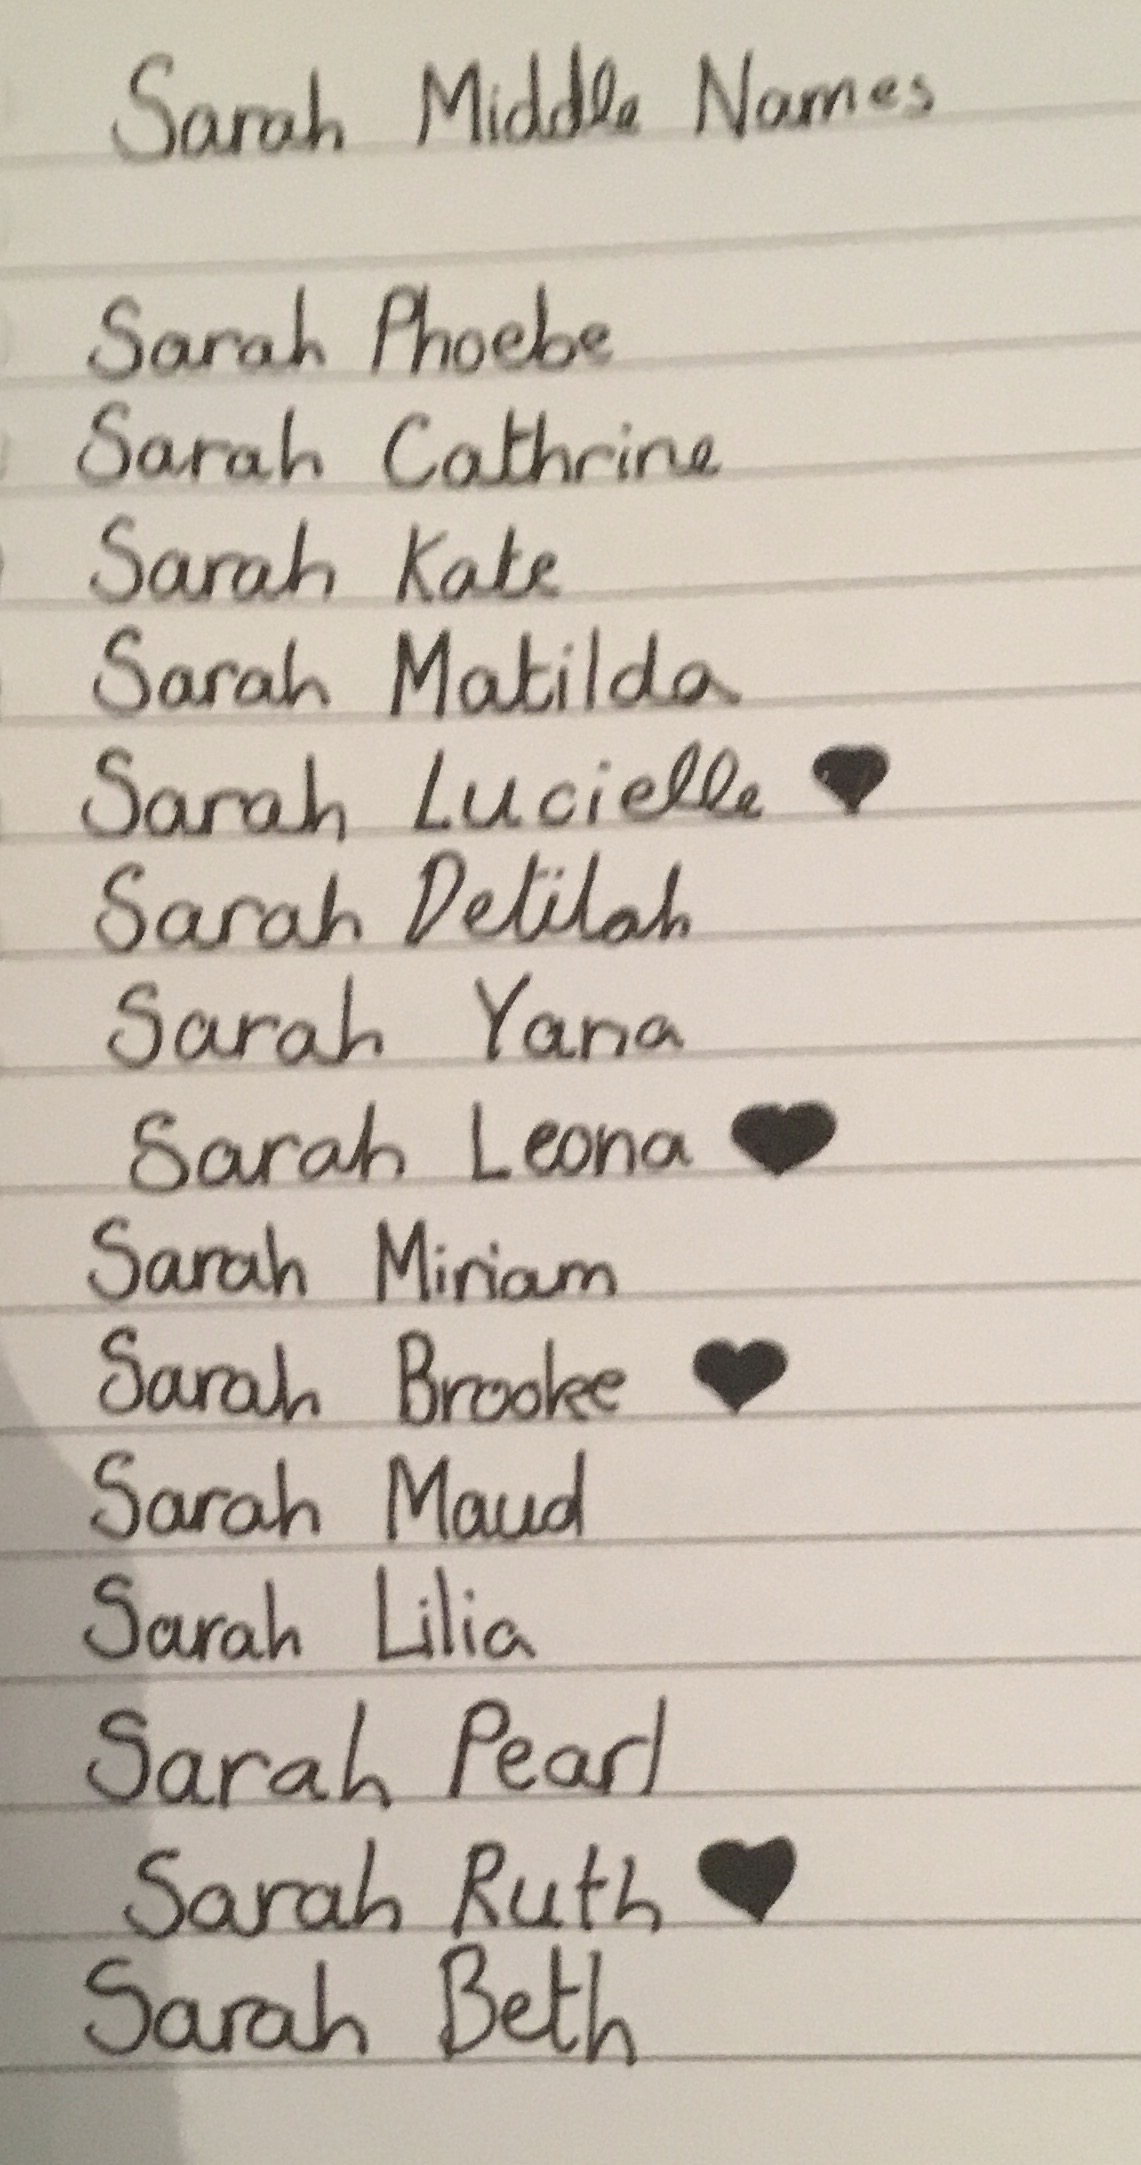 Sarah Middle Names
Sarah Phoebe
Sarah Cathrine
Sarah Kate
Sarah Matilda
Sarah Lucielle
Sarah Detilah
Sarah Yana
Sarah Leona
Sarah Miriam
Sarah Brooke
Sarah Maud
Sarah Lilia
Sarah Pearl
Sarah Ruth
Sarah Beth